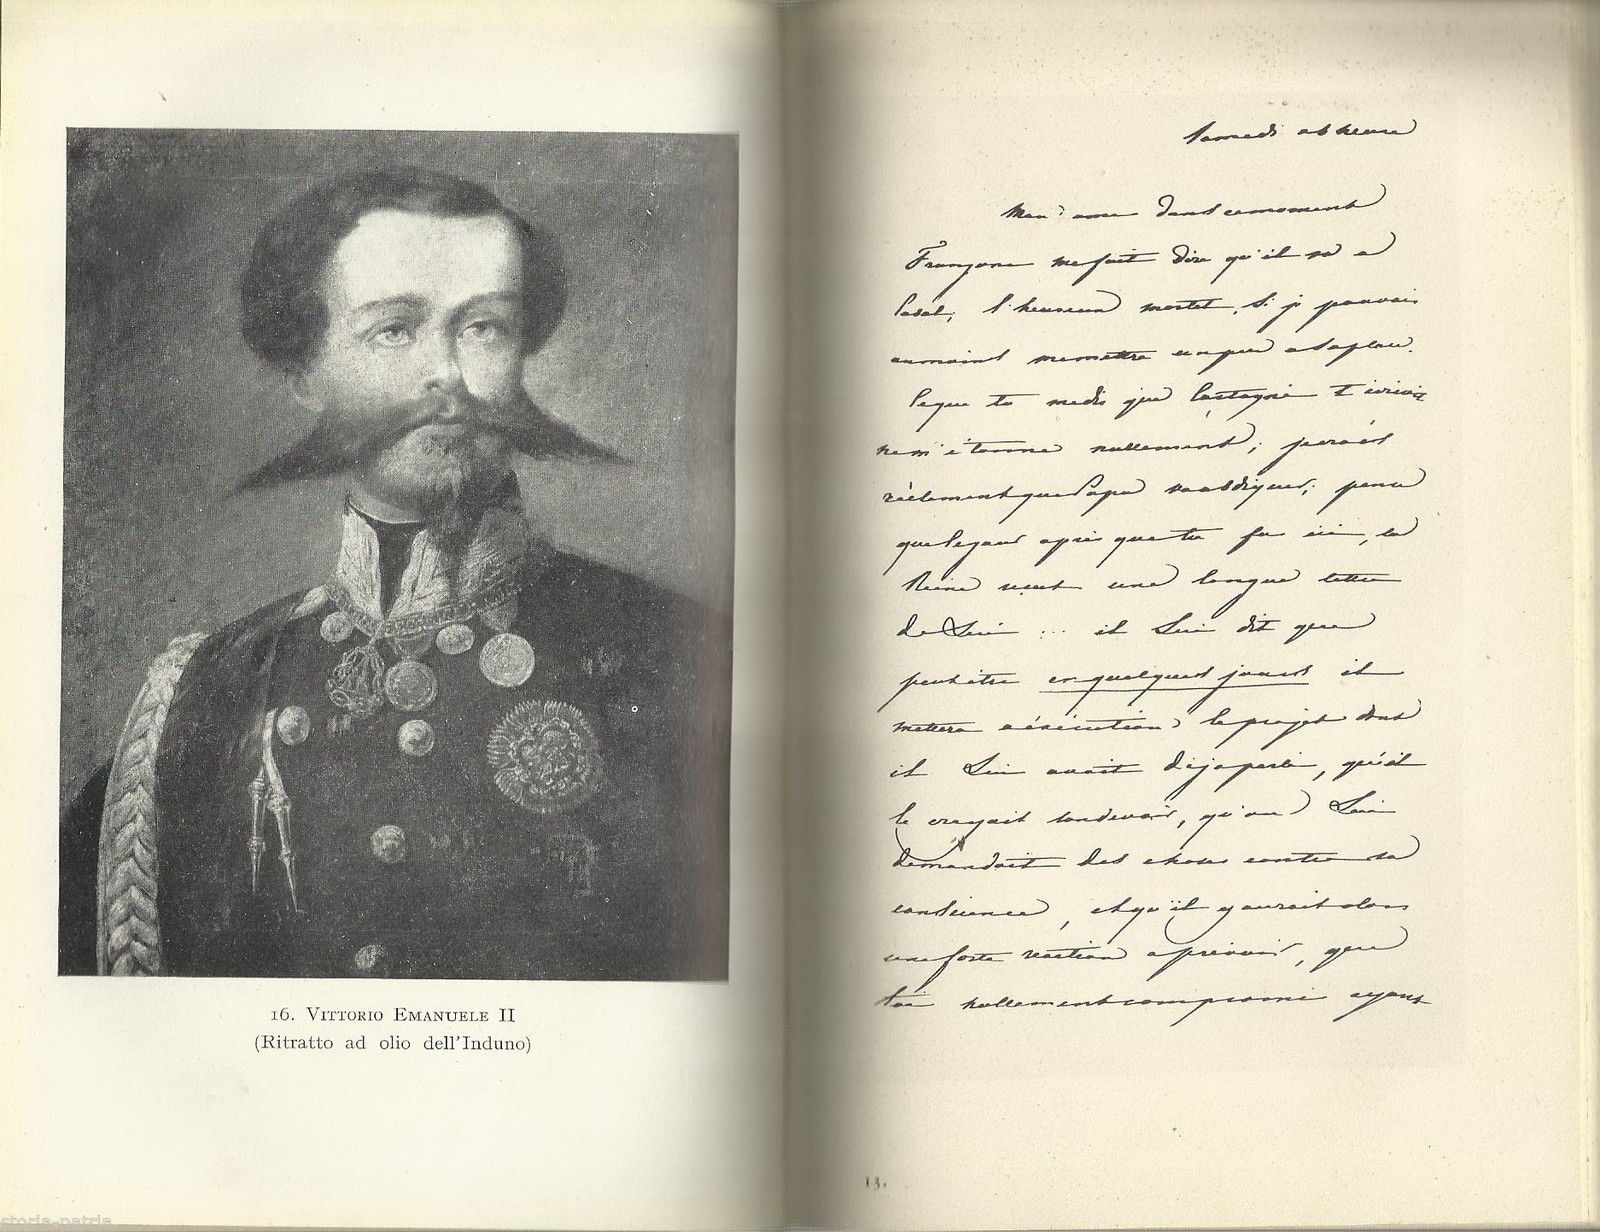 16. Vittorio Emanuele II
(Ritratto ad olio dell'Induno)
Samedi
Mon ame dans ce moment
me fait dire qu'il va a
Casal, l'heureux mortel, si je pouvais
aumoins me mettre un peu a sa place.
ce que tu me dis que Castagné t'écrivit
ne m'étonne nullement;
réelement que Papa va abdiquer; pense
que le jour après que tu fu ici, la
Reine reçut une longue lettre
de Lui ... il Lui dit que
peut etre en quelques jours il
mettera a éxécution le projet dont
il Lui avait déja parlé, qu'il
le croyait son devoir, qu'on Lui
demandait des choses contre sa
conscience, et qu'il y aurait alors
une forte réaction a prévoir, que
toi nullement compromi ayant
13.
storia-patria